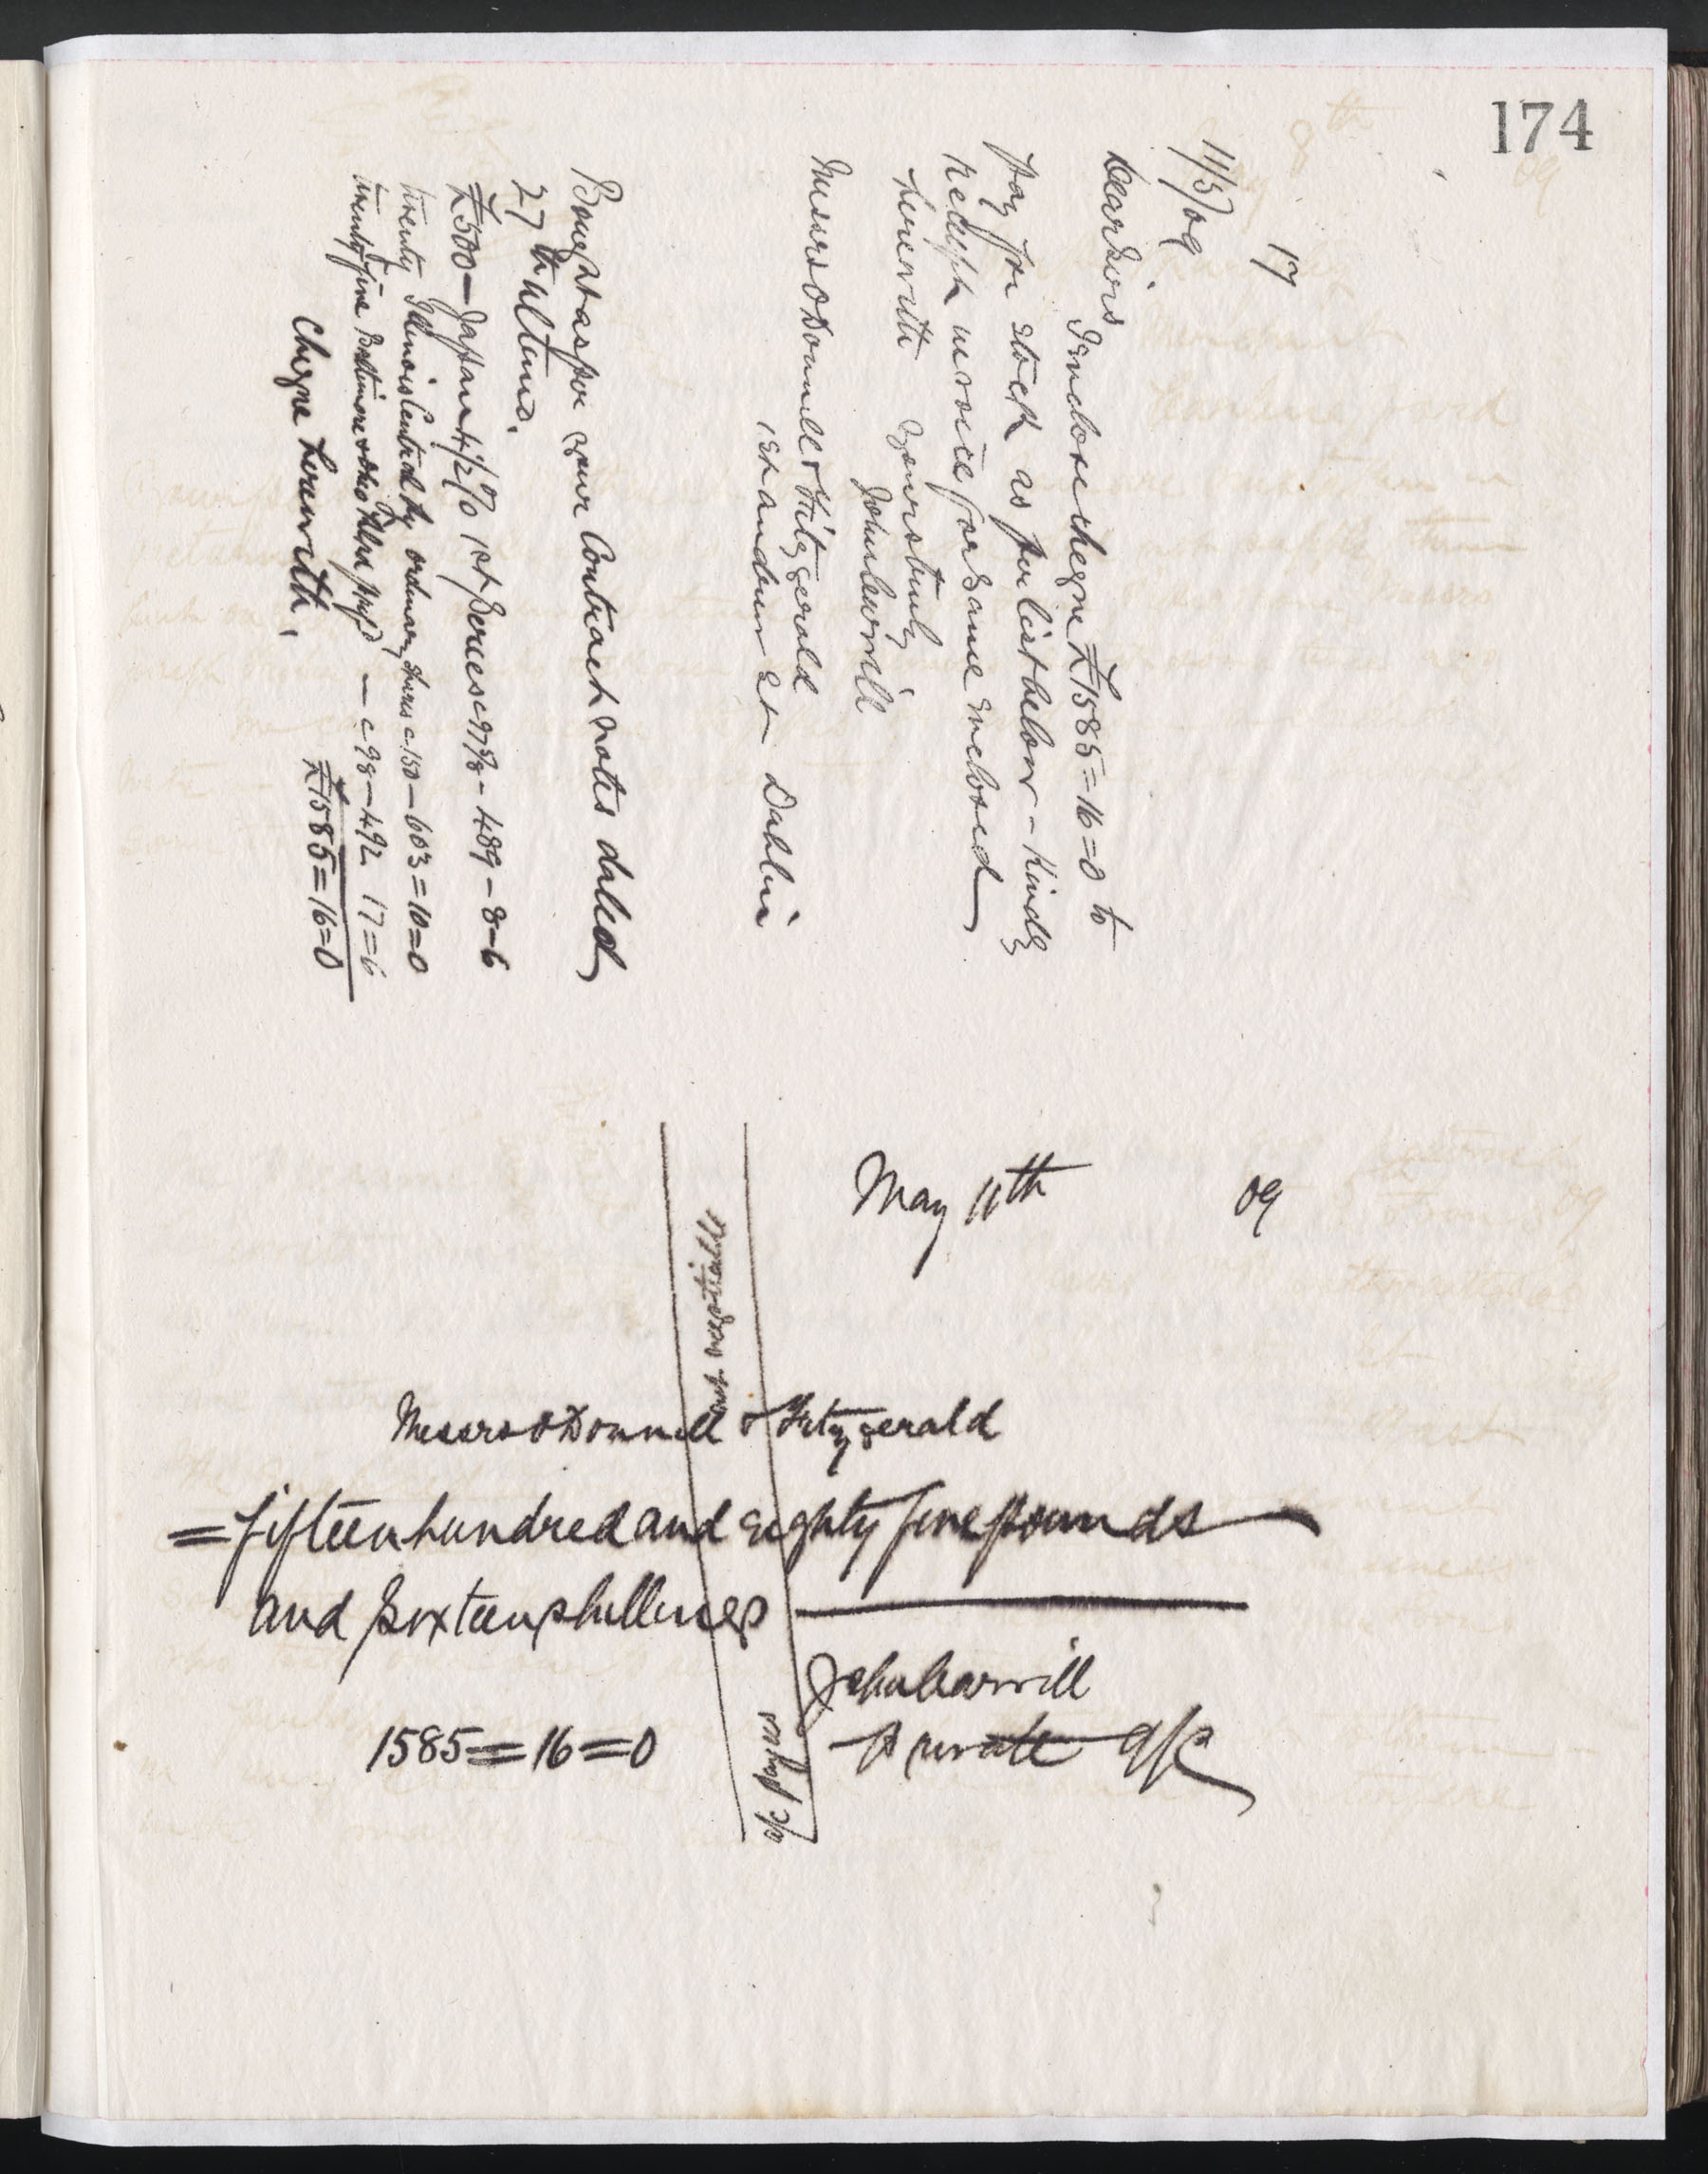 174
17
11/5/09
Dear Sirs
I Enclose cheque £1585=16=0 to
pay for Stock as per list below - Kindly
receipt invoice for same Enclosed
herewith Yours truly
John Carvill
Messrs O'Donnell & Fitzgerald
1 St Andrew St Dublin
Bought as per your Contract notes dated
27th ultimo.
£500 - Japan 4½% 1st Series c 97⅝ - 489-8-6
twenty Illinois Central Ry ordinary Shares c 150 - 603=10=0
twenty five Baltimore & Ohio Rlrd prfd - c 98 - 492 17=6
Cheque herewith. £1585=16=0
May 11th 09
Messrs O'Donnell & Fitzgerald
= fifteen hundred and Eighty five pounds
and Sixteen shillings
John Carvill
1585=16=0 Private a/c
not negotiable
a/c payee